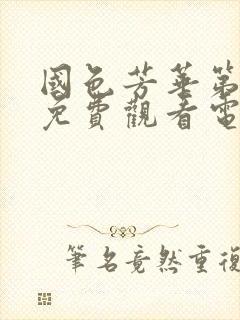 國色芳華第
免費觀看電
筆名竟然重復